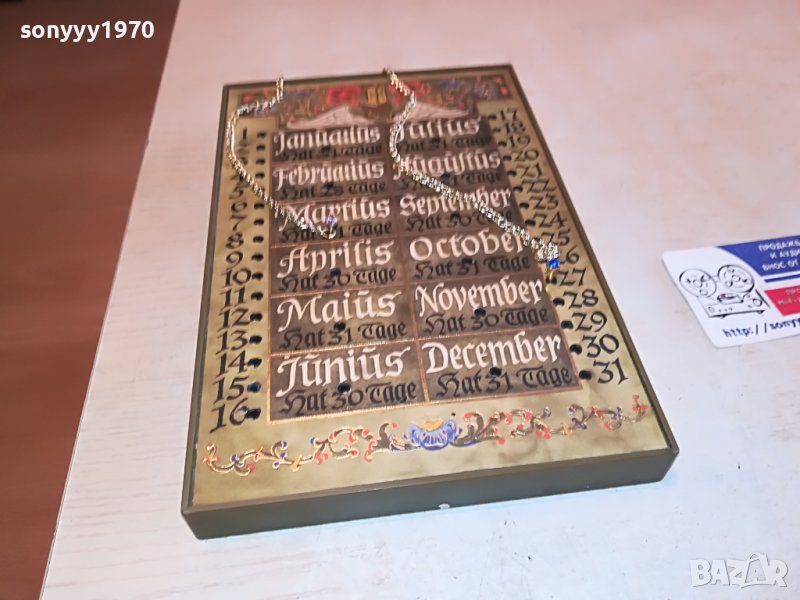 sonyyy1970
Januarius
Hat 31 Tage
Februarius
Hat 28 Tage
Martius
Hat 31 Tage
Aprilis
Hat 30 Tage
Maiūs
Hat 31 Tage
Jūniūs
Hat 30 Tage
Julius
Hat 31 Tage
Augustus
Hat 31 Tage
September
Hat 30 Tage
October
Hat 31 Tage
November
Hat 30 Tage
December
Hat 31 Tage
1
5
6
7
8
9
10
11
12
13
14
15
16
17
18
19
20
21
22
23
24
25
26
27
28
29
30
31
ПРОДАЖБ
И АУДИ
ВНОС ОТ
http://sony
BAZAR